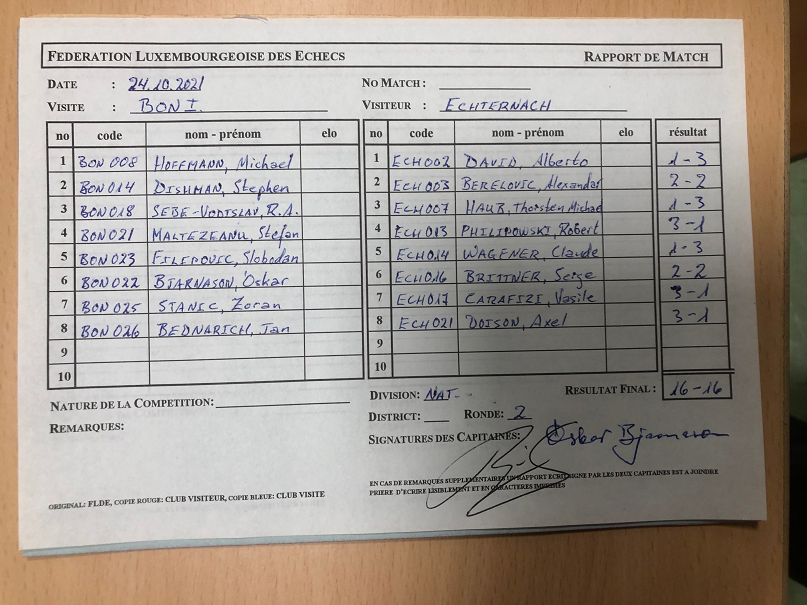 FEDERATION LUXEMBOURGEOISE DES ECHECS RAPPORT DE MATCH
DATE : 24.10.2021 NO MATCH :
VISITE : BON I. VISITEUR : ECHTERNACH
no code nom - prénom elo no code nom - prénom elo résultat
1 BON 008 HOFFMANN, Michael 1 ECH002 DAVID, Alberto 1-3
2 BON 014 DISHMAN, Stephen 2 ECH 003 BERELOVIC, Alexandar 2-2
3 BON 018 SEBE-VODISLAV, R.A. 3 ECH 007 HAUB, Thorsten Michael 1-3
4 BON 021 MALTEZEANU, Stefan 4 ECH 013 PHILIPOWSKI, Robert 3-1
5 BON 023 FILIPOVIC, Slobodan 5 ECH 014 WAGENER, Claude 1-3
6 BON 022 BJARNASON, Óskar 6 ECH 016 BRITTNER, Serge 2-2
7 BON 025 STANIC, Zoran 7 ECH 017 CARAFIZI, Vasile 3-1
8 BON 026 BEDNARICH, Jan 8 ECH 021 DOISON, Axel 3-1
9 9
10 10
NATURE DE LA COMPETITION: DIVISION: NAT. RESULTAT FINAL : 16-16
REMARQUES: DISTRICT: RONDE: 2
SIGNATURES DES CAPITAINES: Óskar Bjarnason
ORIGINAL: FLDE, COPIE ROUGE: CLUB VISITEUR, COPIE BLEUE: CLUB VISITE
EN CAS DE REMARQUES SUPPLEMENTAIRES UN RAPPORT ECRIT SIGNE PAR LES DEUX CAPITAINES EST A JOINDRE
PRIERE D'ECRIRE LISIBLEMENT ET EN CARACTERES IMPRIMES